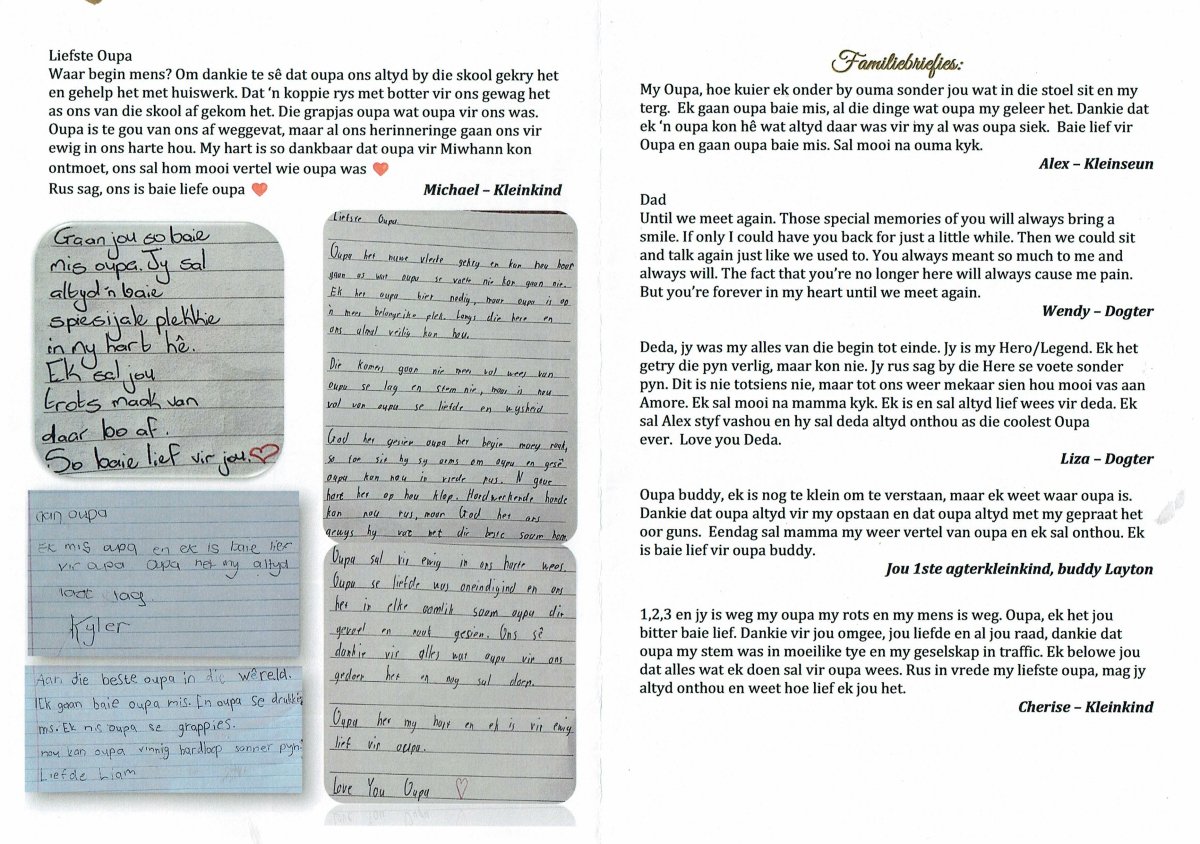 Liefste Oupa
Waar begin mens? Om dankie te sê dat oupa ons altyd by die skool gekry het
en gehelp het met huiswerk. Dat ‘n koppie rys met botter vir ons gewag het
as ons van die skool af gekom het. Die grapjas oupa wat oupa vir ons was.
Oupa is te gou van ons af weggevat, maar al ons herinneringe gaan ons vir
ewig in ons harte hou. My hart is so dankbaar dat oupa vir Miwhann kon
ontmoet, ons sal hom mooi vertel wie oupa was ❤
Rus sag, ons is baie liefe oupa ❤ Michael – Kleinkind
Gaan jou so baie
mis oupa. Jy sal
altyd 'n baie
spiesijale plekkie
in my hart hê.
Ek sal jou
trots maak van
daar bo af.
So baie lief vir jou.
Aan oupa
Ek mis oupa en ek is baie lier
vir oupa Oupa het my altyd
laat lag.
Kyler
Aan die beste oupa in die wêreld.
Ek gaan baie oupa mis. En oupa se drukkie
ms. Ek mis oupa se grappies.
nou kan oupa vinnig hardloop sonner pyn.
Liefde Liam
Liefste Oupa
Oupa het nuwe vlerke gekry en kan nou hoor
gaan as wat oupa se voete nie kon gaan nie.
Ek het oupa hier nodig, maar oupa is op
'n mees belangrike plek. Langs die here en
ons almal veilig kan hou.
Die kamers gaan nie meer vol wees van
oupa se lag en stem nie, maar is nou
vol van oupa se liefde en wysheid
God het gesien oupa het begin moeg raak,
so toe sit hy sy arms om oupa en gesê
oupa kan nou in vrede rus. N goue
hart het op hou klop. Hardwerkende hande
kan nou rus, maar God het ons
gewys hy vat net die beste saam hom.
Oupa sal vir ewig in ons harte wees.
Oupa se liefde was oneindigind en ons
het in elke oomlik saam oupa dit
gevoel en raak gesien. Ons sê
dankie vir alles wat oupa vir ons
gedoen het en nog sal doen.
Oupa het my hart en ek is vir ewig
lief vir oupa.
Love You Oupa
Familiebriefies:
My Oupa, hoe kuier ek onder by ouma sonder jou wat in die stoel sit en my
terg. Ek gaan oupa baie mis, al die dinge wat oupa my geleer het. Dankie dat
ek ‘n oupa kon hê wat altyd daar was vir my al was oupa siek. Baie lief vir
Oupa en gaan oupa baie mis. Sal mooi na ouma kyk.
Alex – Kleinseun
Dad
Until we meet again. Those special memories of you will always bring a
smile. If only I could have you back for just a little while. Then we could sit
and talk again just like we used to. You always meant so much to me and
always will. The fact that you’re no longer here will always cause me pain.
But you’re forever in my heart until we meet again.
Wendy – Dogter
Deda, jy was my alles van die begin tot einde. Jy is my Hero/Legend. Ek het
getry die pyn verlig, maar kon nie. Jy rus sag by die Here se voete sonder
pyn. Dit is nie totsiens nie, maar tot ons weer mekaar sien hou mooi vas aan
Amore. Ek sal mooi na mamma kyk. Ek is en sal altyd lief wees vir deda. Ek
sal Alex styf vashou en hy sal deda altyd onthou as die coolest Oupa
ever. Love you Deda.
Liza – Dogter
Oupa buddy, ek is nog te klein om te verstaan, maar ek weet waar oupa is.
Dankie dat oupa altyd vir my opstaan en dat oupa altyd met my gepraat het
oor guns. Eendag sal mamma my weer vertel van oupa en ek sal onthou. Ek
is baie lief vir oupa buddy.
Jou 1ste agterkleinkind, buddy Layton
1,2,3 en jy is weg my oupa my rots en my mens is weg. Oupa, ek het jou
bitter baie lief. Dankie vir jou omgee, jou liefde en al jou raad, dankie dat
oupa my stem was in moeilike tye en my geselskap in traffic. Ek belowe jou
dat alles wat ek doen sal vir oupa wees. Rus in vrede my liefste oupa, mag jy
altyd onthou en weet hoe lief ek jou het.
Cherise – Kleinkind